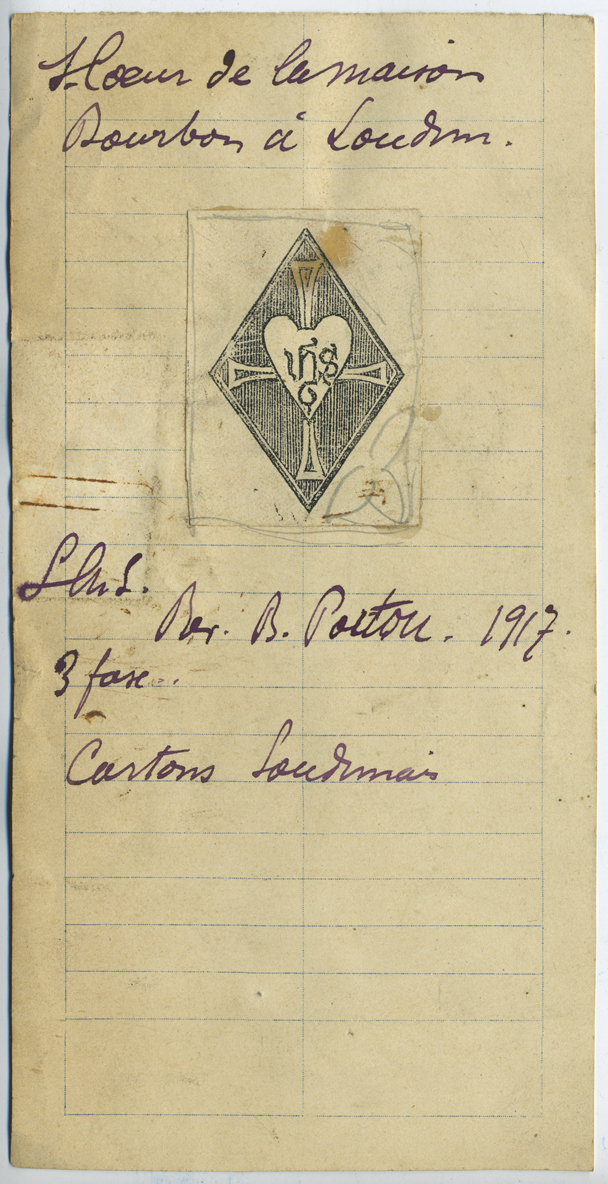 Coeur de la maison
Bourbon à Loudun.
IHS
Rev. B. Poitou. 1917.
3 fasc.
Cartons Loudunais